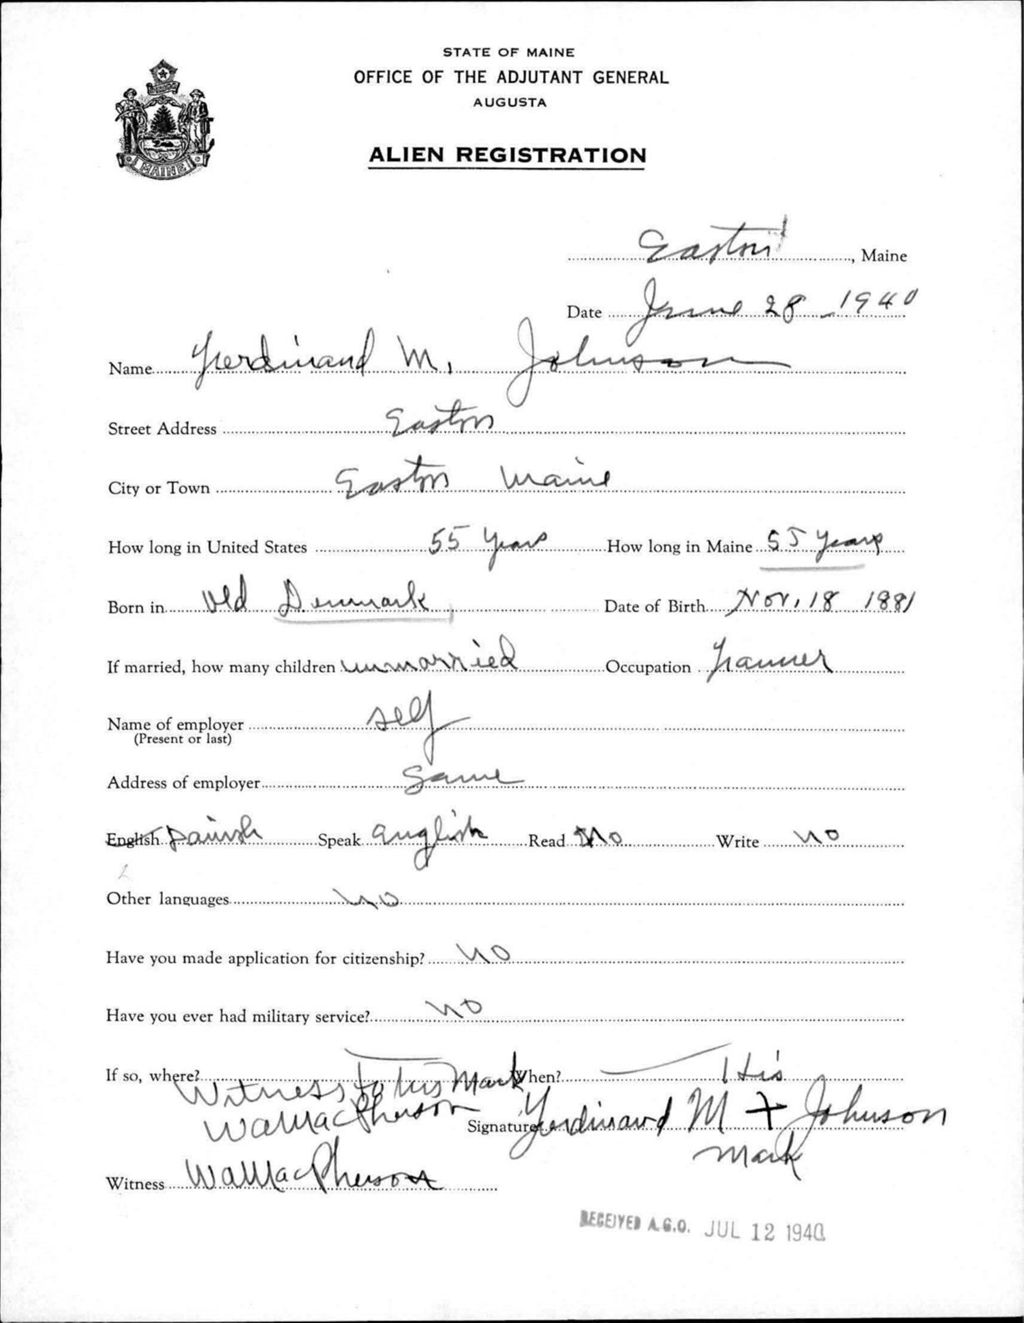 STATE OF MAINE
OFFICE OF THE ADJUTANT GENERAL
AUGUSTA
ALIEN REGISTRATION
MAINE
Easton, Maine
Date June 28 - 1940
Name Ferdinand M. Johnson
Street Address Easton
City or Town Easton Maine
How long in United States 55 Years How long in Maine 55 Years
Born in Old Denmark Date of Birth Nov. 18 1881
If married, how many children unmarried Occupation Farmer
Name of employer self
(Present or last)
Address of employer Same
English Danish Speak English Read No Write no
Other languages no
Have you made application for citizenship? no
Have you ever had military service? no
If so, where? When? His
Witness to his Mark
Wa MacPherson Signature Ferdinand M + Johnson
mark
Witness Wa MacPherson
RECEIVED A.G.O. JUL 12 1940